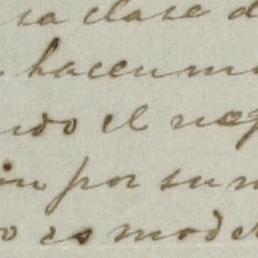 sa clase d
haccum
ndo el neg
in por su m
o es moder